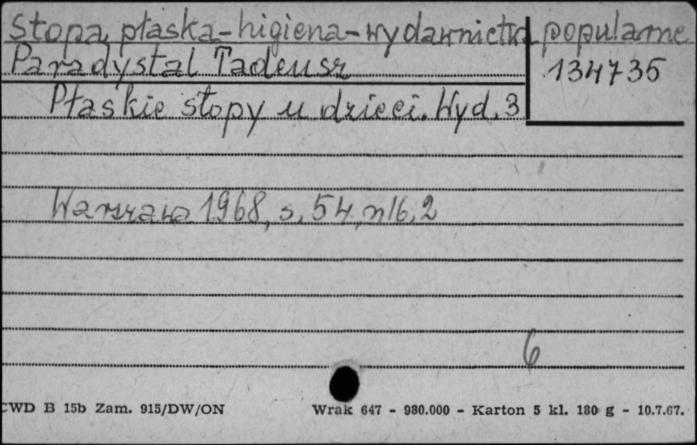 Stopa płaska-higiena-wydawnictwa popularne
Paradystal Tadeusz
134735
Płaskie stopy u dzieci. Wyd. 3
Warszawa 1968, s. 54, nlb. 2
6
CWD B 15b Zam. 915/DW/ON Wrak 647 - 980.000 - Karton 5 kl. 180 g - 10.7.67.